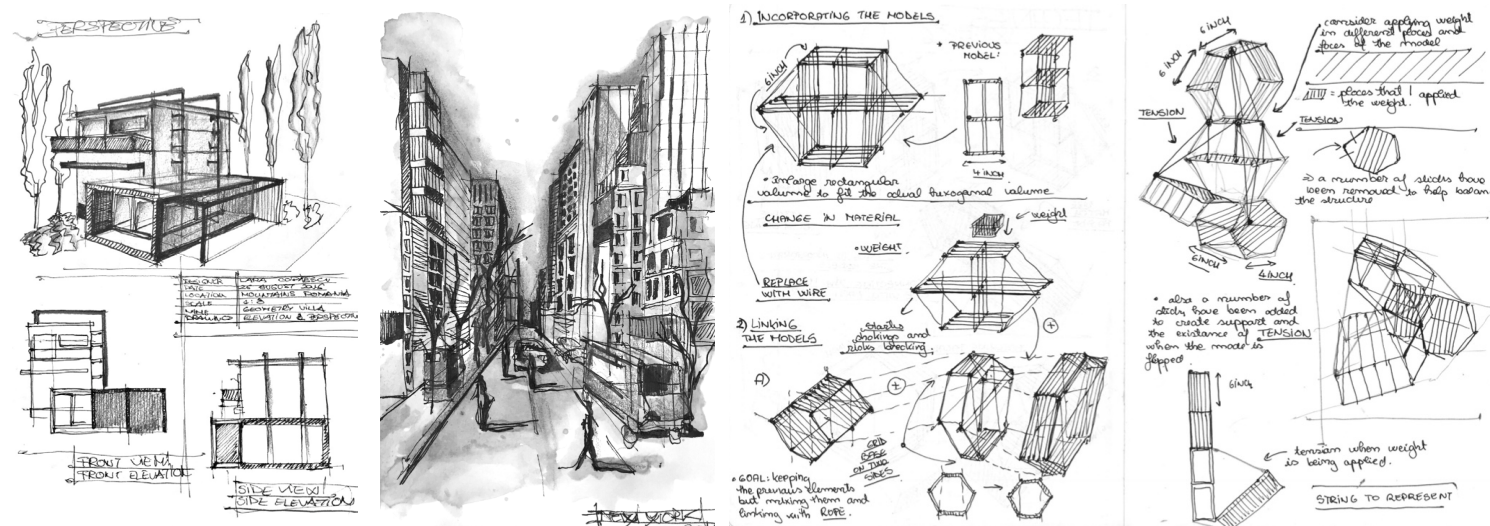 PERSPECTIVE
DESIGNER
DATE 25 AUGUST 2016
LOCATION MOUNTAINS ROMANIA
SCALE
NAME GEOMETRY VILLA
DRAWING ELEVATION & PERSPECTIVE
FRONT VIEW/
FRONT ELEVATION
SIDE VIEW/
SIDE ELEVATION
NEW YORK
1) INCORPORATING THE MODELS
6 INCH
* PREVIOUS
MODEL:
4 INCH
• Enlarge rectangular
volume to fit the actual hexagonal volume
CHANGE IN MATERIAL
• WEIGHT
weight
REPLACE
WITH WIRE
starts
and
risks breaking.
2) LINKING
THE MODELS
A)
GRID
BASE
ON TWO
SIDES
• GOAL: keeping
the previous elements
but making them and
linking with ROPE.
6 INCH
6 INCH
consider applying weight
in different places and
faces of the model
= places that I applied
the weight.
TENSION
TENSION
a number of sticks have
been removed to help balan
the structure
6 INCH
4 INCH
• also a number of
sticks have been added
to create support and
the existance of TENSION
when the mode is
flipped.
6 INCH
tension when weight
is being applied.
STRING TO REPRESENT